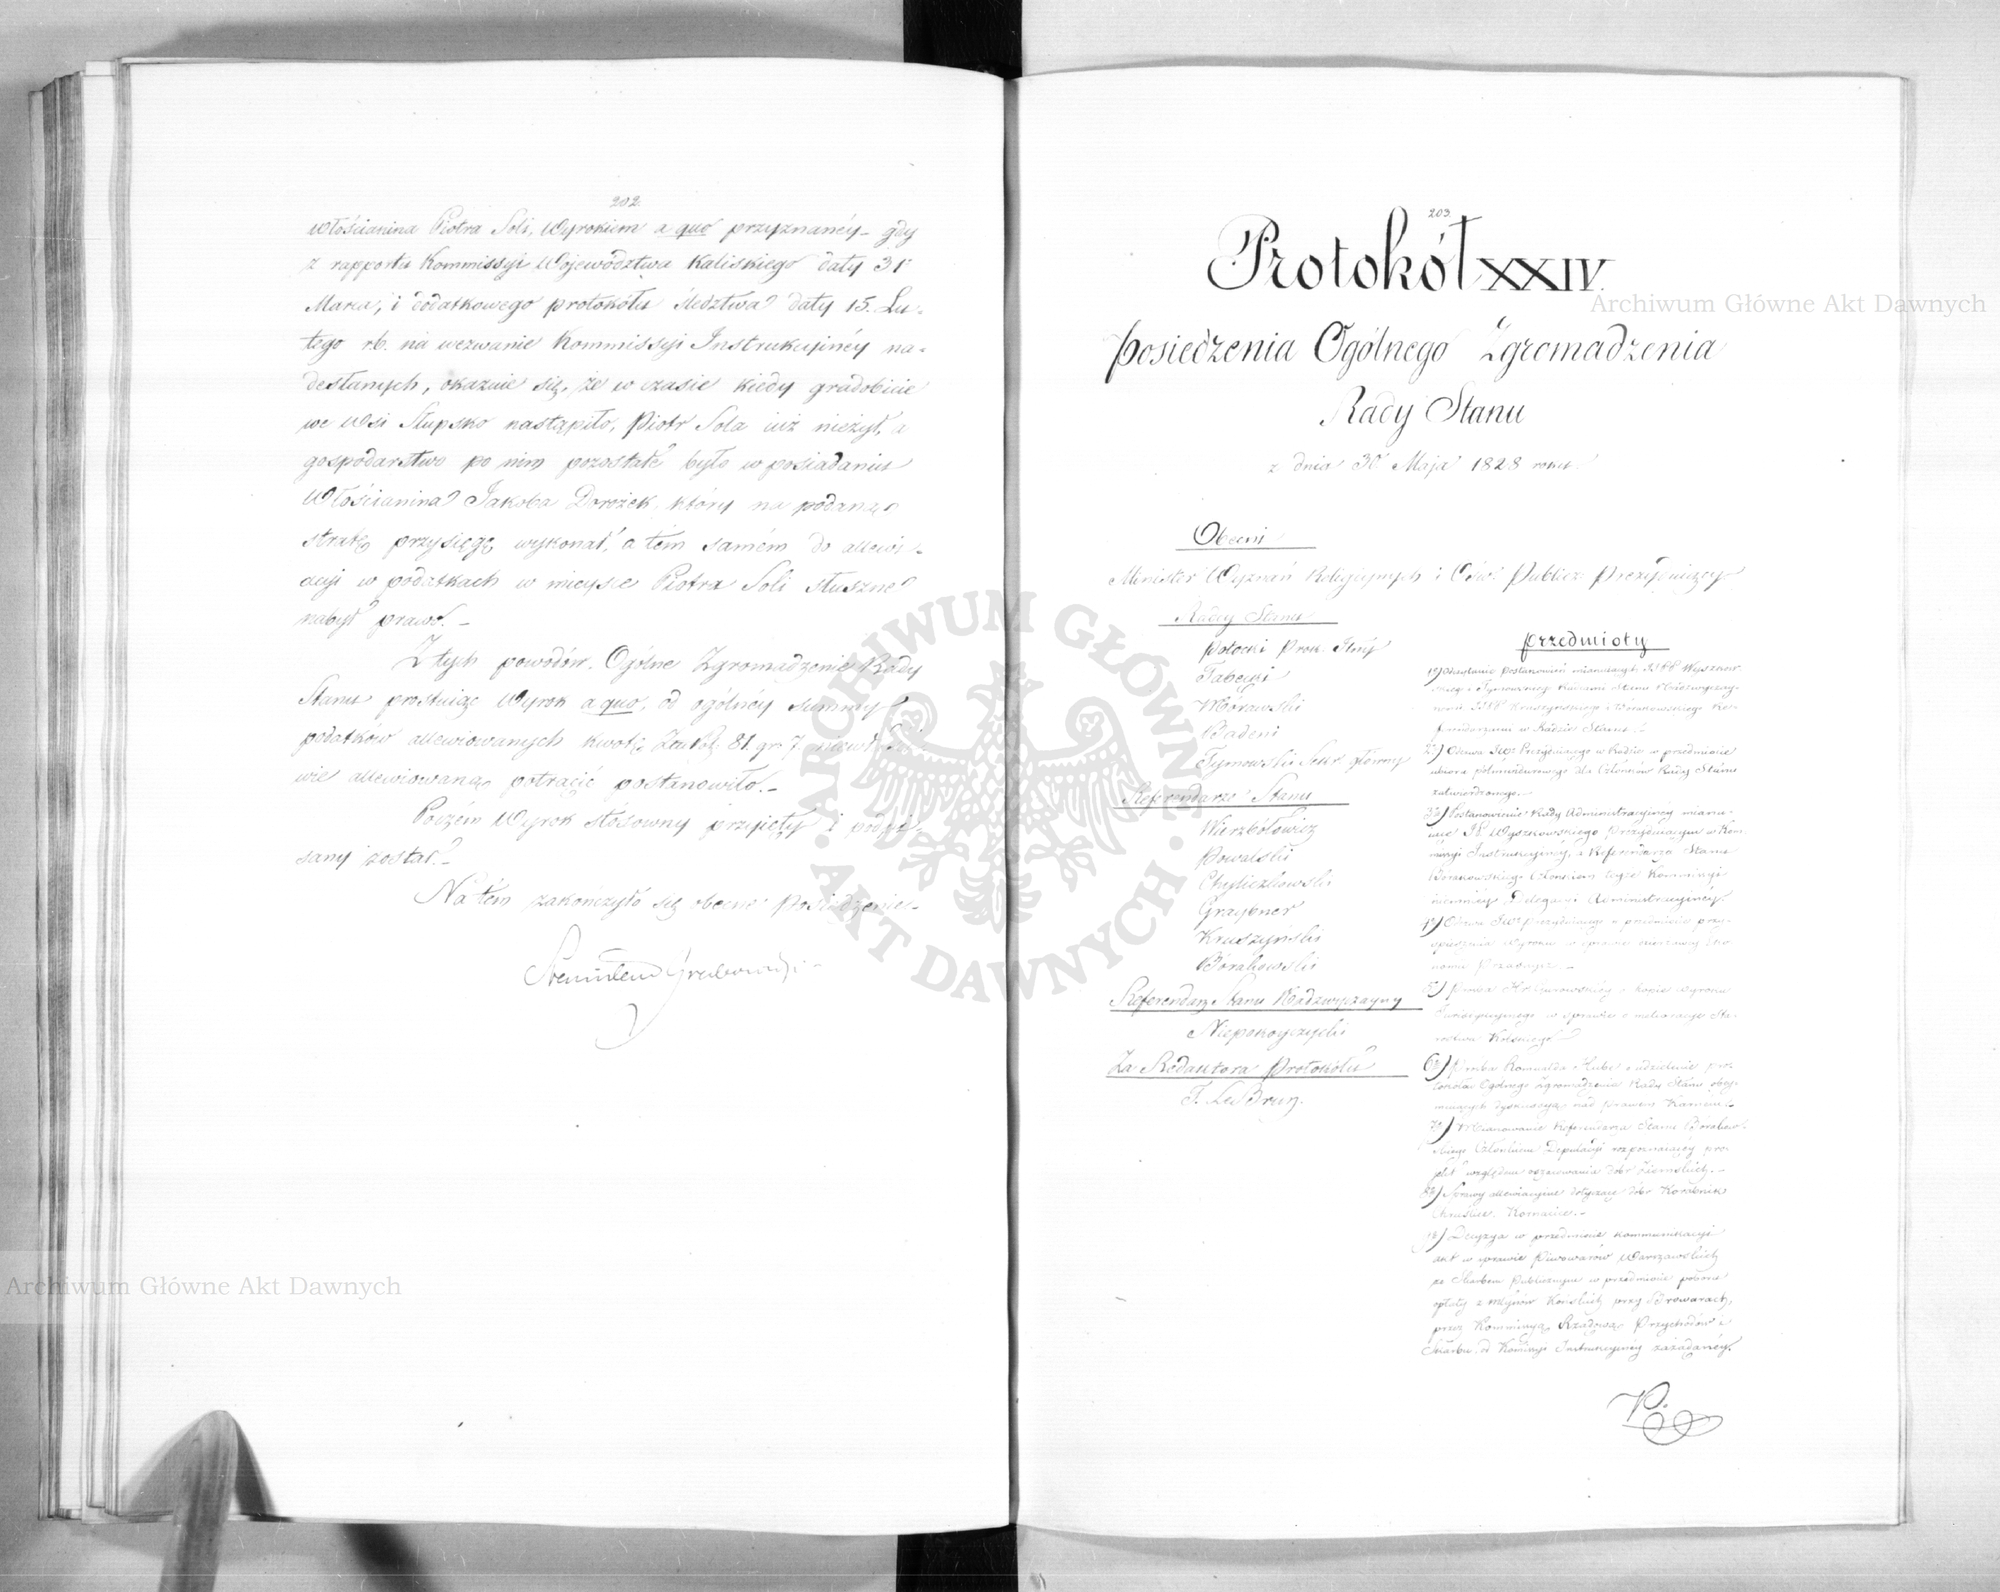 202.
Włościanina Piotra Soli, Wyrokiem a quo przyznanéy – gdy
z rapportu Kommissyi Województwa Kaliskiego daty 31
Marca, i dodatkowego protokółu śledztwa daty 15. Lu-
tego rb. na wezwanie Kommissyi Instrukcyinéy na-
desłanych, okazuie się, że w czasie kiedy gradobicie
we Wsi Słupsko nastąpiło, Piotr Sola iuż nieżył, a
gospodarstwo po nim pozostałe było w posiadaniu
Włościanina Jakóba Dorożek, który na podaną
stratę przysięgę wykonał, a tém samém do allewi-
acyi w podatkach w mieysce Piotra Soli słuszne
nabył prawo. –
Z tych powodów. Ogólne Zgromadzenie Rady
Stanu prostuiąc Wyrok a quo, od ogólnéy summy
podatków allewiowanych kwotę Złt Pol. 81. gr. 7.
wie allewiowaną potrącić postanowiło. –
Poczém Wyrok stósowny przyięty i podpi-
sany został. –
Na tém zakończyło się obecne Posiedzenie. –
Stanisław Grabowski
203.
Protokół XXIV.
Posiedzenia Ogólnego Zgromadzenia
Rady Stanu
z dnia 30 Maja 1828 roku.
Obecni
Minister Wyznań Religiynych i Ośw. Publicz. Prezyduiący
Radcy Stanu
Potocki Prok. Jlny
Tabęcki
Morawski
Badeni
Tymowski Sekr. główny
Referendarze Stanu
Wierzbółowicz
Powalski
Chyliczkowski
Graybner
Kruszyński
Borakowski
Referendarz Stanu Nadzwyczayny
Niepokoyczycki
Za Redaktora Protokółu
F. Le Brun.
Przedmioty
1º) Odczytanie Postanowień mianuiących JJPP. Wyszkow-
skiego i Tymowskiego Radcami Stanu Nadzwyczay-
nemi JJPP. Kruszyńskiego i Borakowskiego Re-
ferendarzami w Radzie Stanu. –
2º) Odezwa JW. Prezyduiącego w Radzie w przedmiocie
ubioru półmundurowego dla Członków Rady Stanu
zatwierdzonego. –
3º) Postanowienie Rady Administracyinéy mianu-
iące JP. Wyszkowskiego Prezyduiącym w Kom-
missyi Instrukcyinéy, a Referendarza Stanu
Borakowskiego Członkiem teyże Kommissyi
niemniéy Delegacyi Administracyinéy.
4º) Odezwa JW. Prezyduiącego w przedmiocie przy-
spieszenia Wyroku w sprawie
5º) Prośba o kopie Wyroku
w sprawie o melioracye Sta-
rostwa Kolskiego
6º) Prośba Romualda Hube o udzielenie pro-
tokołów Ogólnego Zgromadzenia Rady Stanu obey-
muiących dyskussyą nad prawem Karném. –
7º) Mianowanie Referendarza Stanu Borakow-
skiego Członkiem Deputacyi rozpoznaiącéy pro-
jekt względem oczynszowania dóbr Ziemskich. –
8º) Sprawy allewiacyine dotyczące dóbr Korabnik
Chruślice. Kornacice. –
9º) Decyzya w przedmiocie kommunikacyi
akt w sprawie Piwowarów Warszawskich
ze Skarbem Publicznym w przedmiocie poboru
opłaty z młynów Końskich przy Browarach,
przez Kommissyą Rządową Przychodów i
Skarbu, od Kommissyi Instrukcyinéy zażądanéy.
Archiwum Główne Akt Dawnych
Archiwum Główne Akt Dawnych
ARCHIWUM GŁÓWNE · AKT DAWNYCH ·